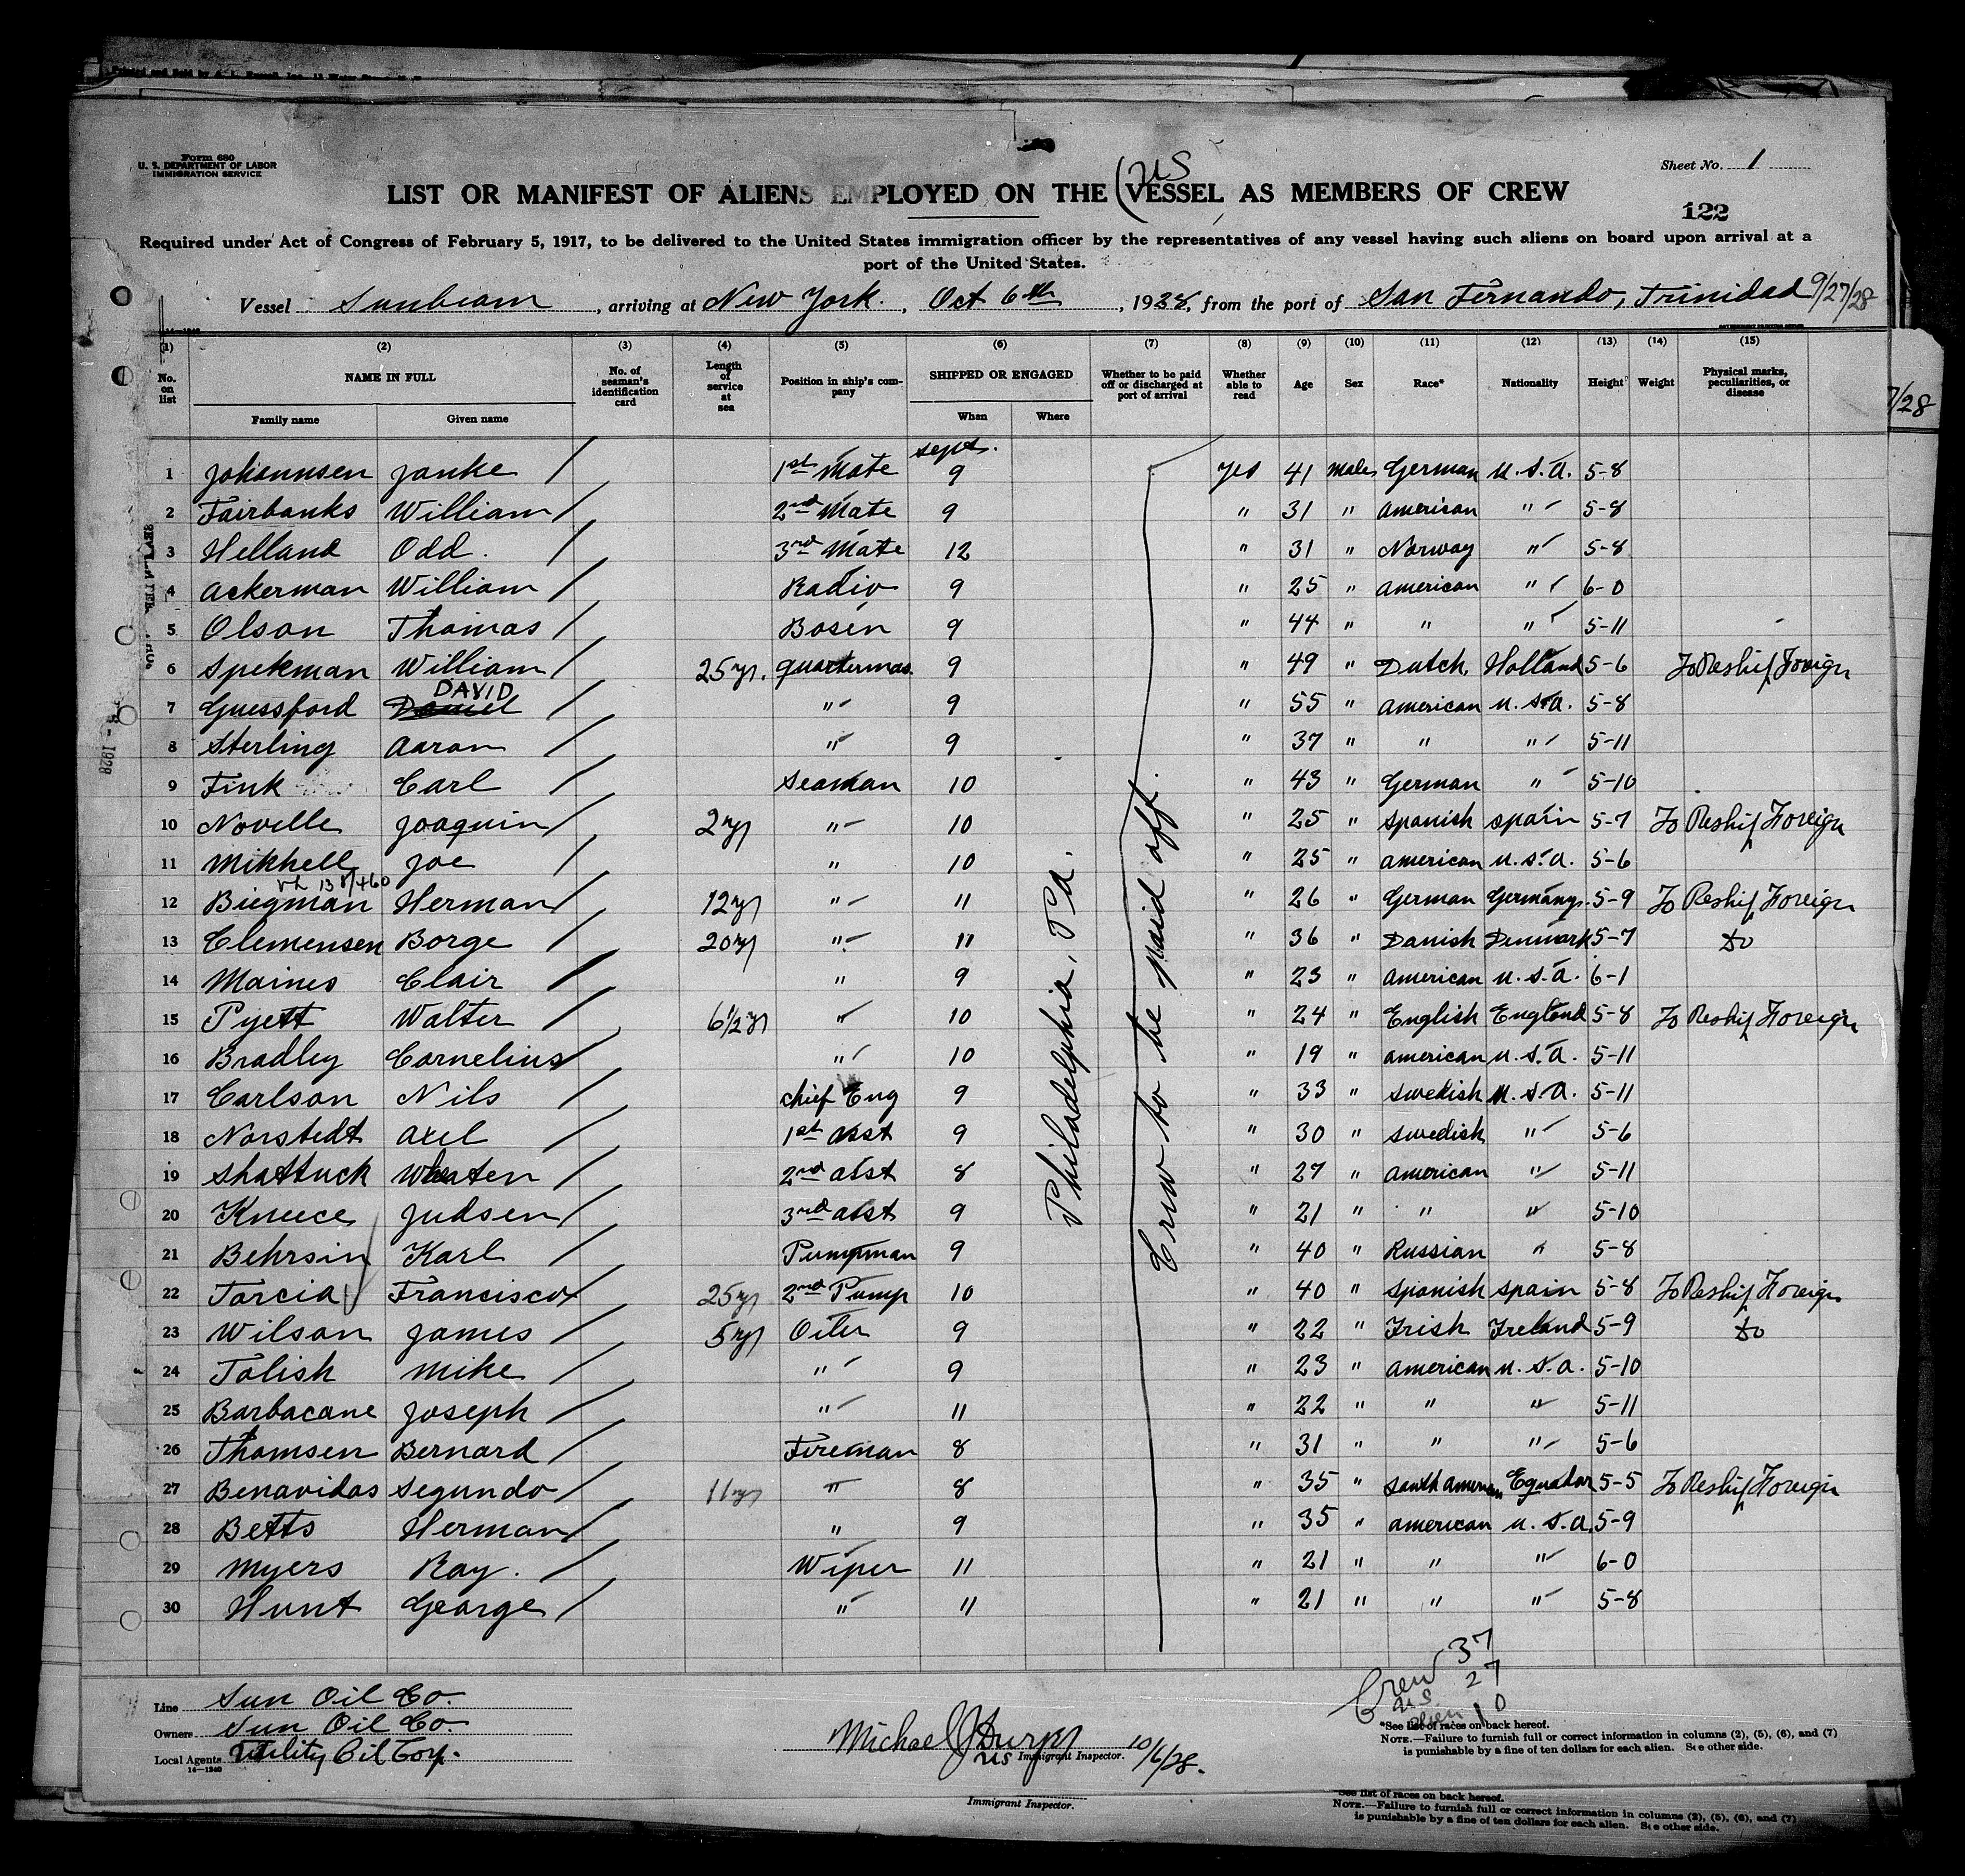 Form 680
U. S. DEPARTMENT OF LABOR
IMMIGRATION SERVICE
Sheet No. 1
US
LIST OR MANIFEST OF ALIENS EMPLOYED ON THE (VESSEL AS MEMBERS OF CREW
122
Required under Act of Congress of February 5, 1917, to be delivered to the United States immigration officer by the representatives of any vessel having such aliens on board upon arrival at a
port of the United States.
Vessel Sunbeam, arriving at New York, Oct 6th, 1928, from the port of San Fernando, Trinidad 9/27/28
(1) (2) (3) (4) (5) (6) (7) (8) (9) (10) (11) (12) (13) (14) (15)
No. on list NAME IN FULL No. of seaman's identification card Length of service at sea Position in ship's company SHIPPED OR ENGAGED Whether to be paid off or discharged at port of arrival Whether able to read Age Sex Race* Nationality Height Weight Physical marks, peculiarities, or disease
Family name Given name When Where
/28
Sept.
1 Johannsen Janke / 1st Mate 9 Yes 41 Male German U.S.A. 5-8
2 Fairbanks William / 2nd Mate 9 " 31 " American " 5-8
3 Helland Odd. / 3rd Mate 12 " 31 " Norway " 5-8
4 Ackerman William / Radio 9 " 25 " American " 6-0
5 Olson Thomas / Bosen 9 " 44 " " " 5-11
6 Spekman William / 25 yr. Quartermas. 9 " 49 " Dutch Holland 5-6 To Reship Foreign
DAVID
7 Guessford Daniel / " 9 " 55 " American U.S.A. 5-8
8 Sterling Aaron / " 9 " 37 " " " 5-11
9 Fink Carl / Seaman 10 " 43 " German " 5-10
10 Novelle Joaquin / 2 yr " 10 " 25 " Spanish Spain 5-7 To Reship Foreign
11 Mikhell Joe / " 10 " 25 " American U.S.A. 5-6
12 Biegman Herman / 12 yr " 11 " 26 " German Germany 5-9 To Reship Foreign
13 Clemensen Borge / 20 yr " 11 " 36 " Danish Denmark 5-7 do
14 Maines Clair / " 9 " 23 " American U.S.A. 6-1
15 Pyett Walter / 6 1/2 yr " 10 " 24 " English England 5-8 To Reship Foreign
16 Bradley Cornelius / " 10 " 19 " American U.S.A. 5-11
17 Carlson Nils / Chief Eng 9 " 33 " Swedish U.S.A. 5-11
18 Norstedt Axel / 1st Asst 9 " 30 " Swedish " 5-6
19 Shattuck Wheaten / 2nd Asst 8 " 27 " American " 5-11
20 Kneece Judsen / 3rd Asst 9 " 21 " " " 5-10
21 Behrsin Karl / Pumpman 9 " 40 " Russian " 5-8
22 Torcia Francisco / 25 yr 2nd Pump 10 " 40 " Spanish Spain 5-8 To Reship Foreign
23 Wilson James / 5 yr Oiler 9 " 22 " Irish Ireland 5-9 do
24 Tolish Mike / " 9 " 23 " American U.S.A. 5-10
25 Barbacane Joseph / " 11 " 22 " " " 5-11
26 Thomsen Bernard / Fireman 8 " 31 " " " 5-6
27 Benavidas Segundo / 11 yr " 8 " 35 " South American Equador 5-5 To Reship Foreign
28 Betts Herman / " 9 " 35 " American U.S.A. 5-9
29 Myers Ray. / Wiper 11 " 21 " " " 6-0
30 Hunt George / " 11 " 21 " " " 5-8
Philadelphia, Pa.
Crew to be paid off.
Crew 37
US 27
Alien 10
Line Sun Oil Co.
Owners Sun Oil Co.
Local Agents Utility Oil Corp.
14—1240
Michael J
US Immigrant Inspector. 10/6/28.
*See list of races on back hereof.
NOTE.—Failure to furnish full or correct information in columns (2), (5), (6), and (7)
is punishable by a fine of ten dollars for each alien. See other side.
Immigrant Inspector.
See list of races on back hereof.
NOTE.—Failure to furnish full or correct information in columns (2), (5), (6), and (7)
is punishable by a fine of ten dollars for each alien. See other side.